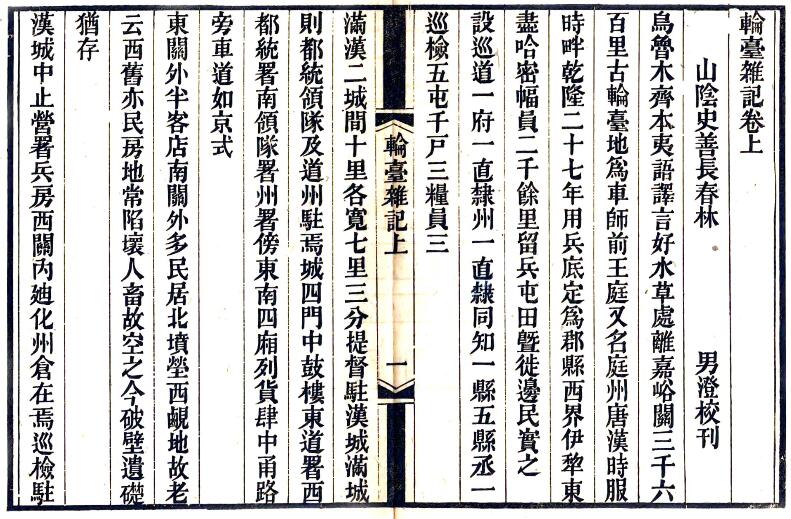 輪臺雜記卷上
山陰史善長春林　男澄校刊
烏魯木齊本夷語譯言好水草處離嘉峪關三千六
百里古輪臺地爲車師前王庭又名庭州唐漢時服
時畔乾隆二十七年用兵底定爲郡縣西界伊犂東
盡哈密幅員二千餘里留兵屯田曁徙邊民實之
設巡道一府一直隸州一直隸同知一縣五縣丞一
巡檢五屯千戸三糧員三
輪臺雜記上　一
滿漢二城間十里各寛七里三分提督駐漢城滿城
則都統領隊及道州駐焉城四門中鼓樓東道署西
都統署南領隊署州署傍東南四廂列貨肆中甬路
旁車道如京式
東關外半客店南關外多民居北墳塋西覷地故老
云西舊亦民房地常陷壞人畜故空之今破壁遺礎
猶存
漢城中止營署兵房西關內廸化州倉在焉巡檢駐